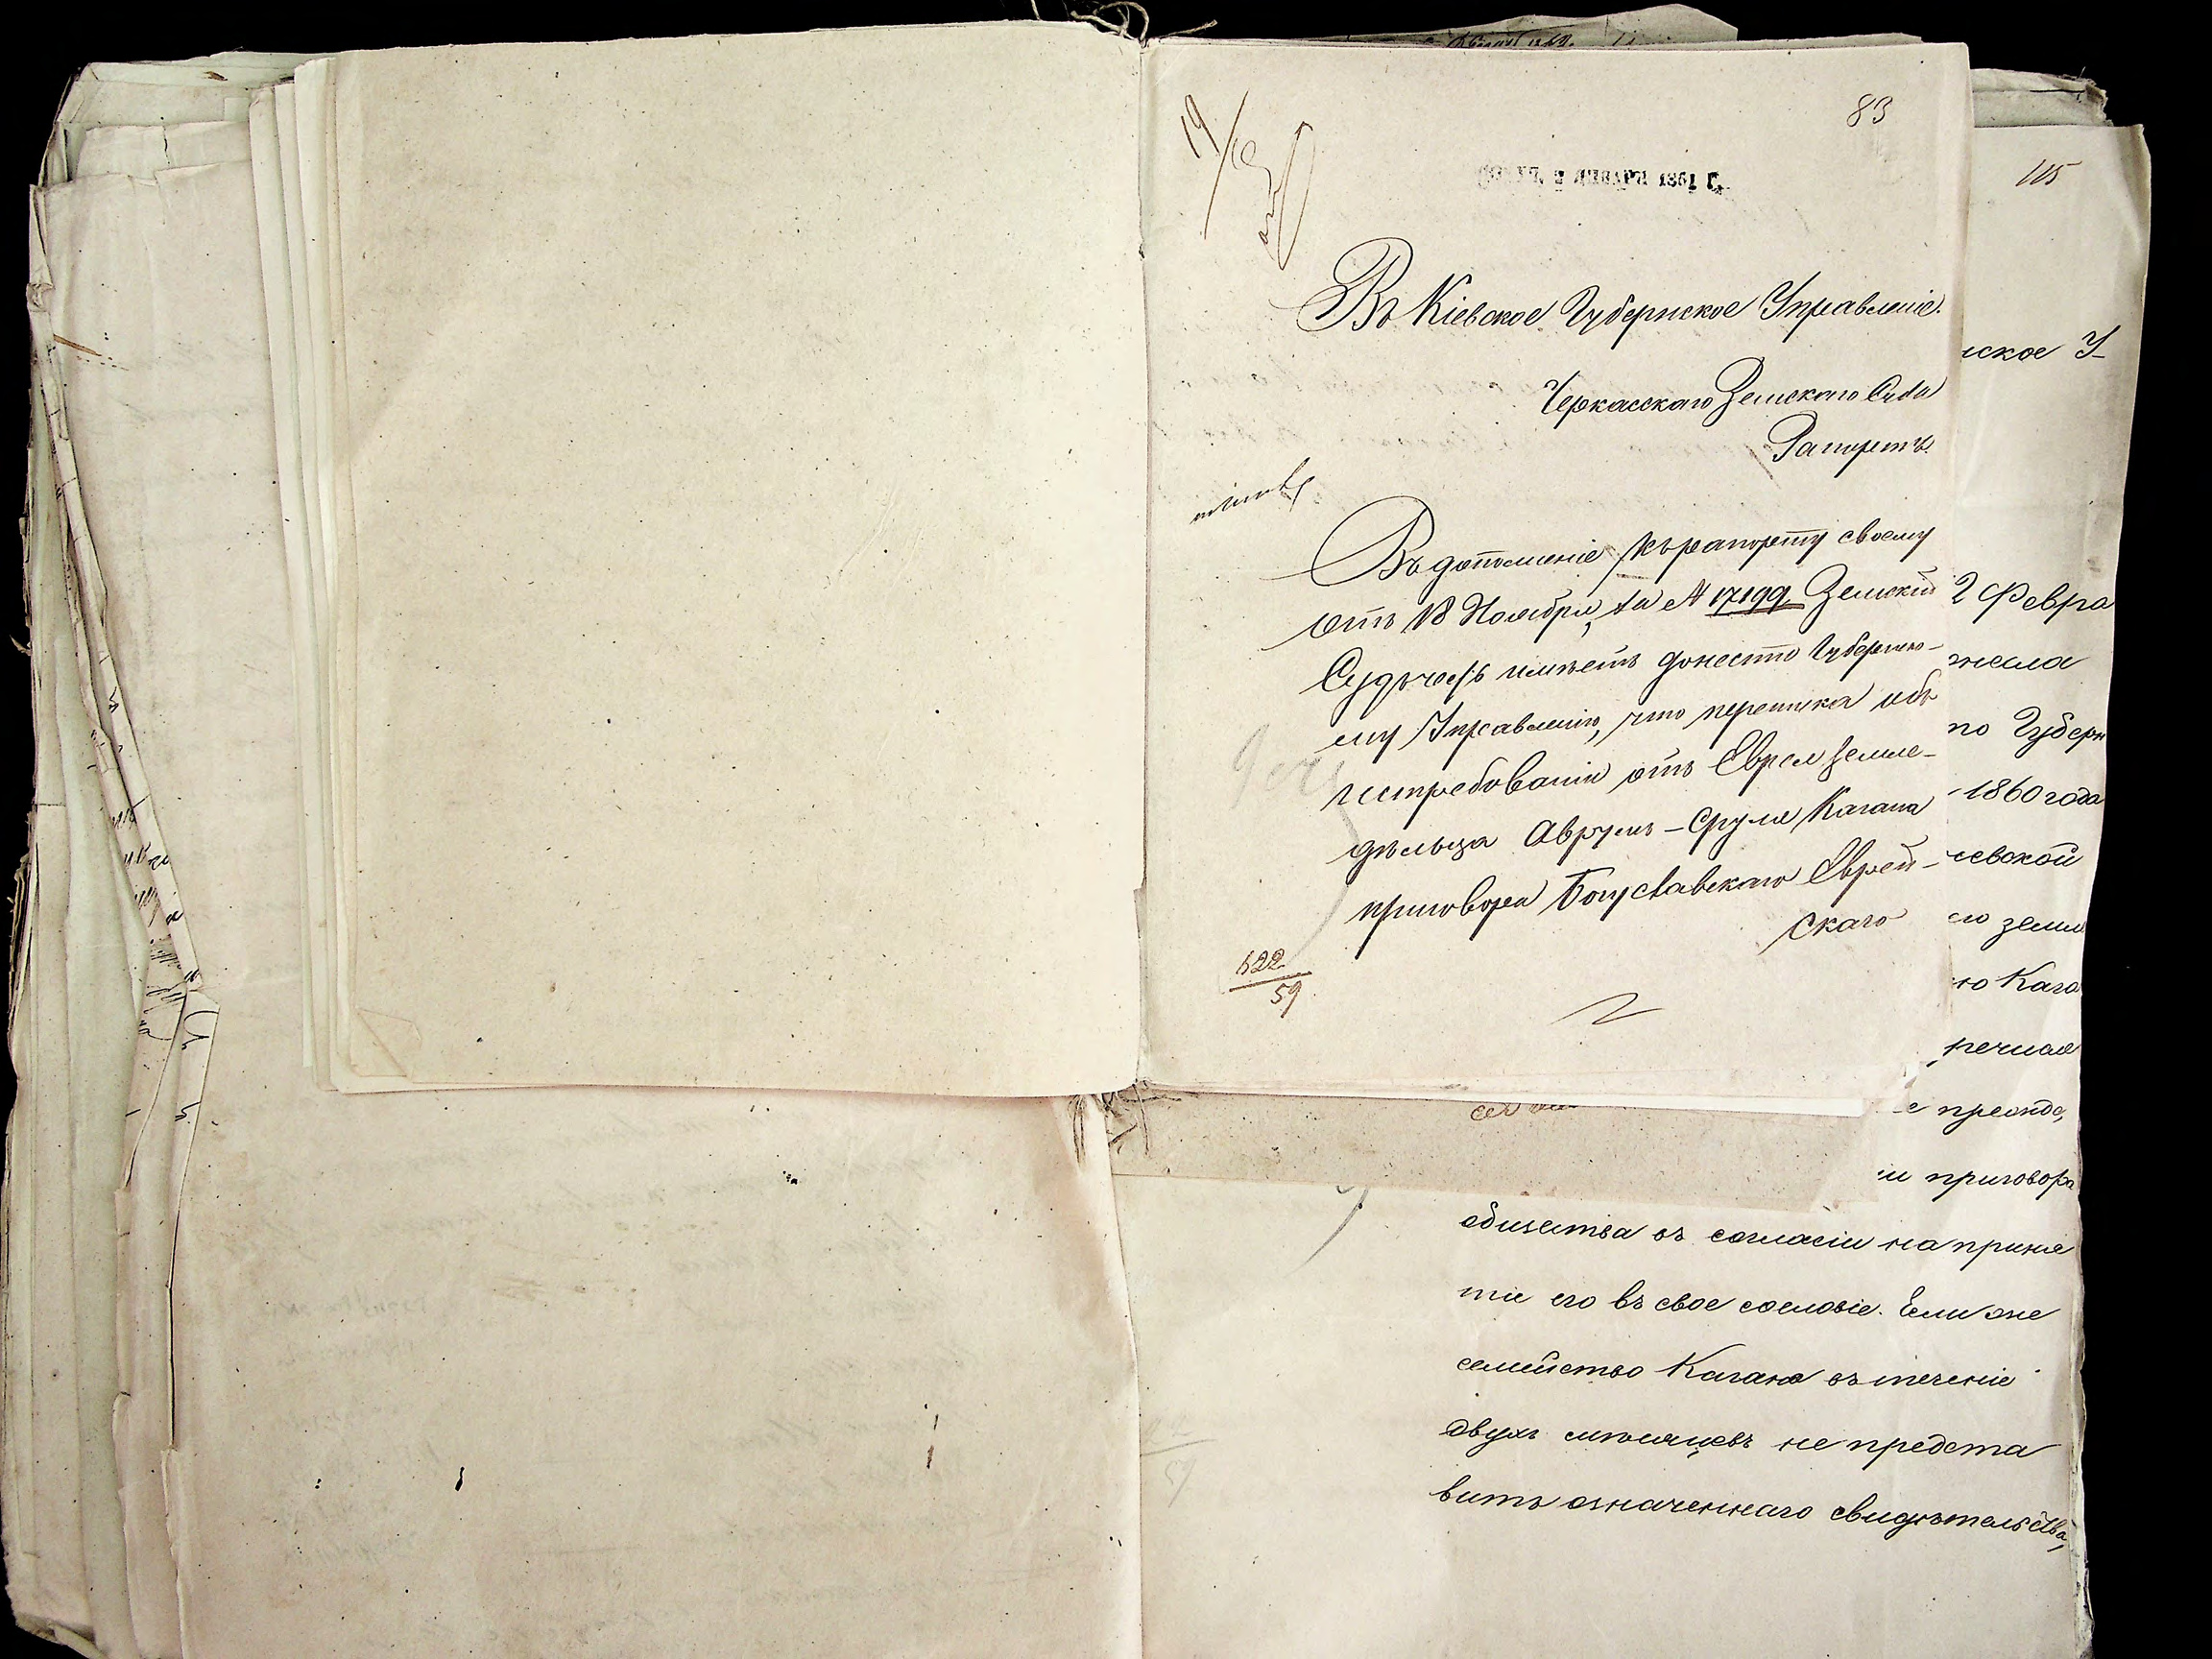 83
ПОЛУЧ. 2 ЯНВАРЯ 1861 Г.
Въ Кіевское Губернское Управленіе.
Черкасскаго Земскаго Суда
Рапортъ.
Въ дополненіе къ рапорту своему
отъ 18 Ноября, за № 17199 Земскій
Судъ честь имѣетъ донести Губернско-
му Управленію, что переписка объ
истребованіи отъ Еврея земле-
дѣльца Аврумъ-Сруля Кагана
приговора Богуславскаго Еврей-
скаго
622
59
115
нское У-
2 Февра
жела
по Губерн
1860 года
іевской
го земле
го Кага
речная
е предо,
и приговора
общества въ согласіи на приня
тіе его въ свое сословіе. Если же
семейство Кагана въ теченіе
двухъ мѣсяцевъ не предста
витъ означеннаго свидѣтельства,